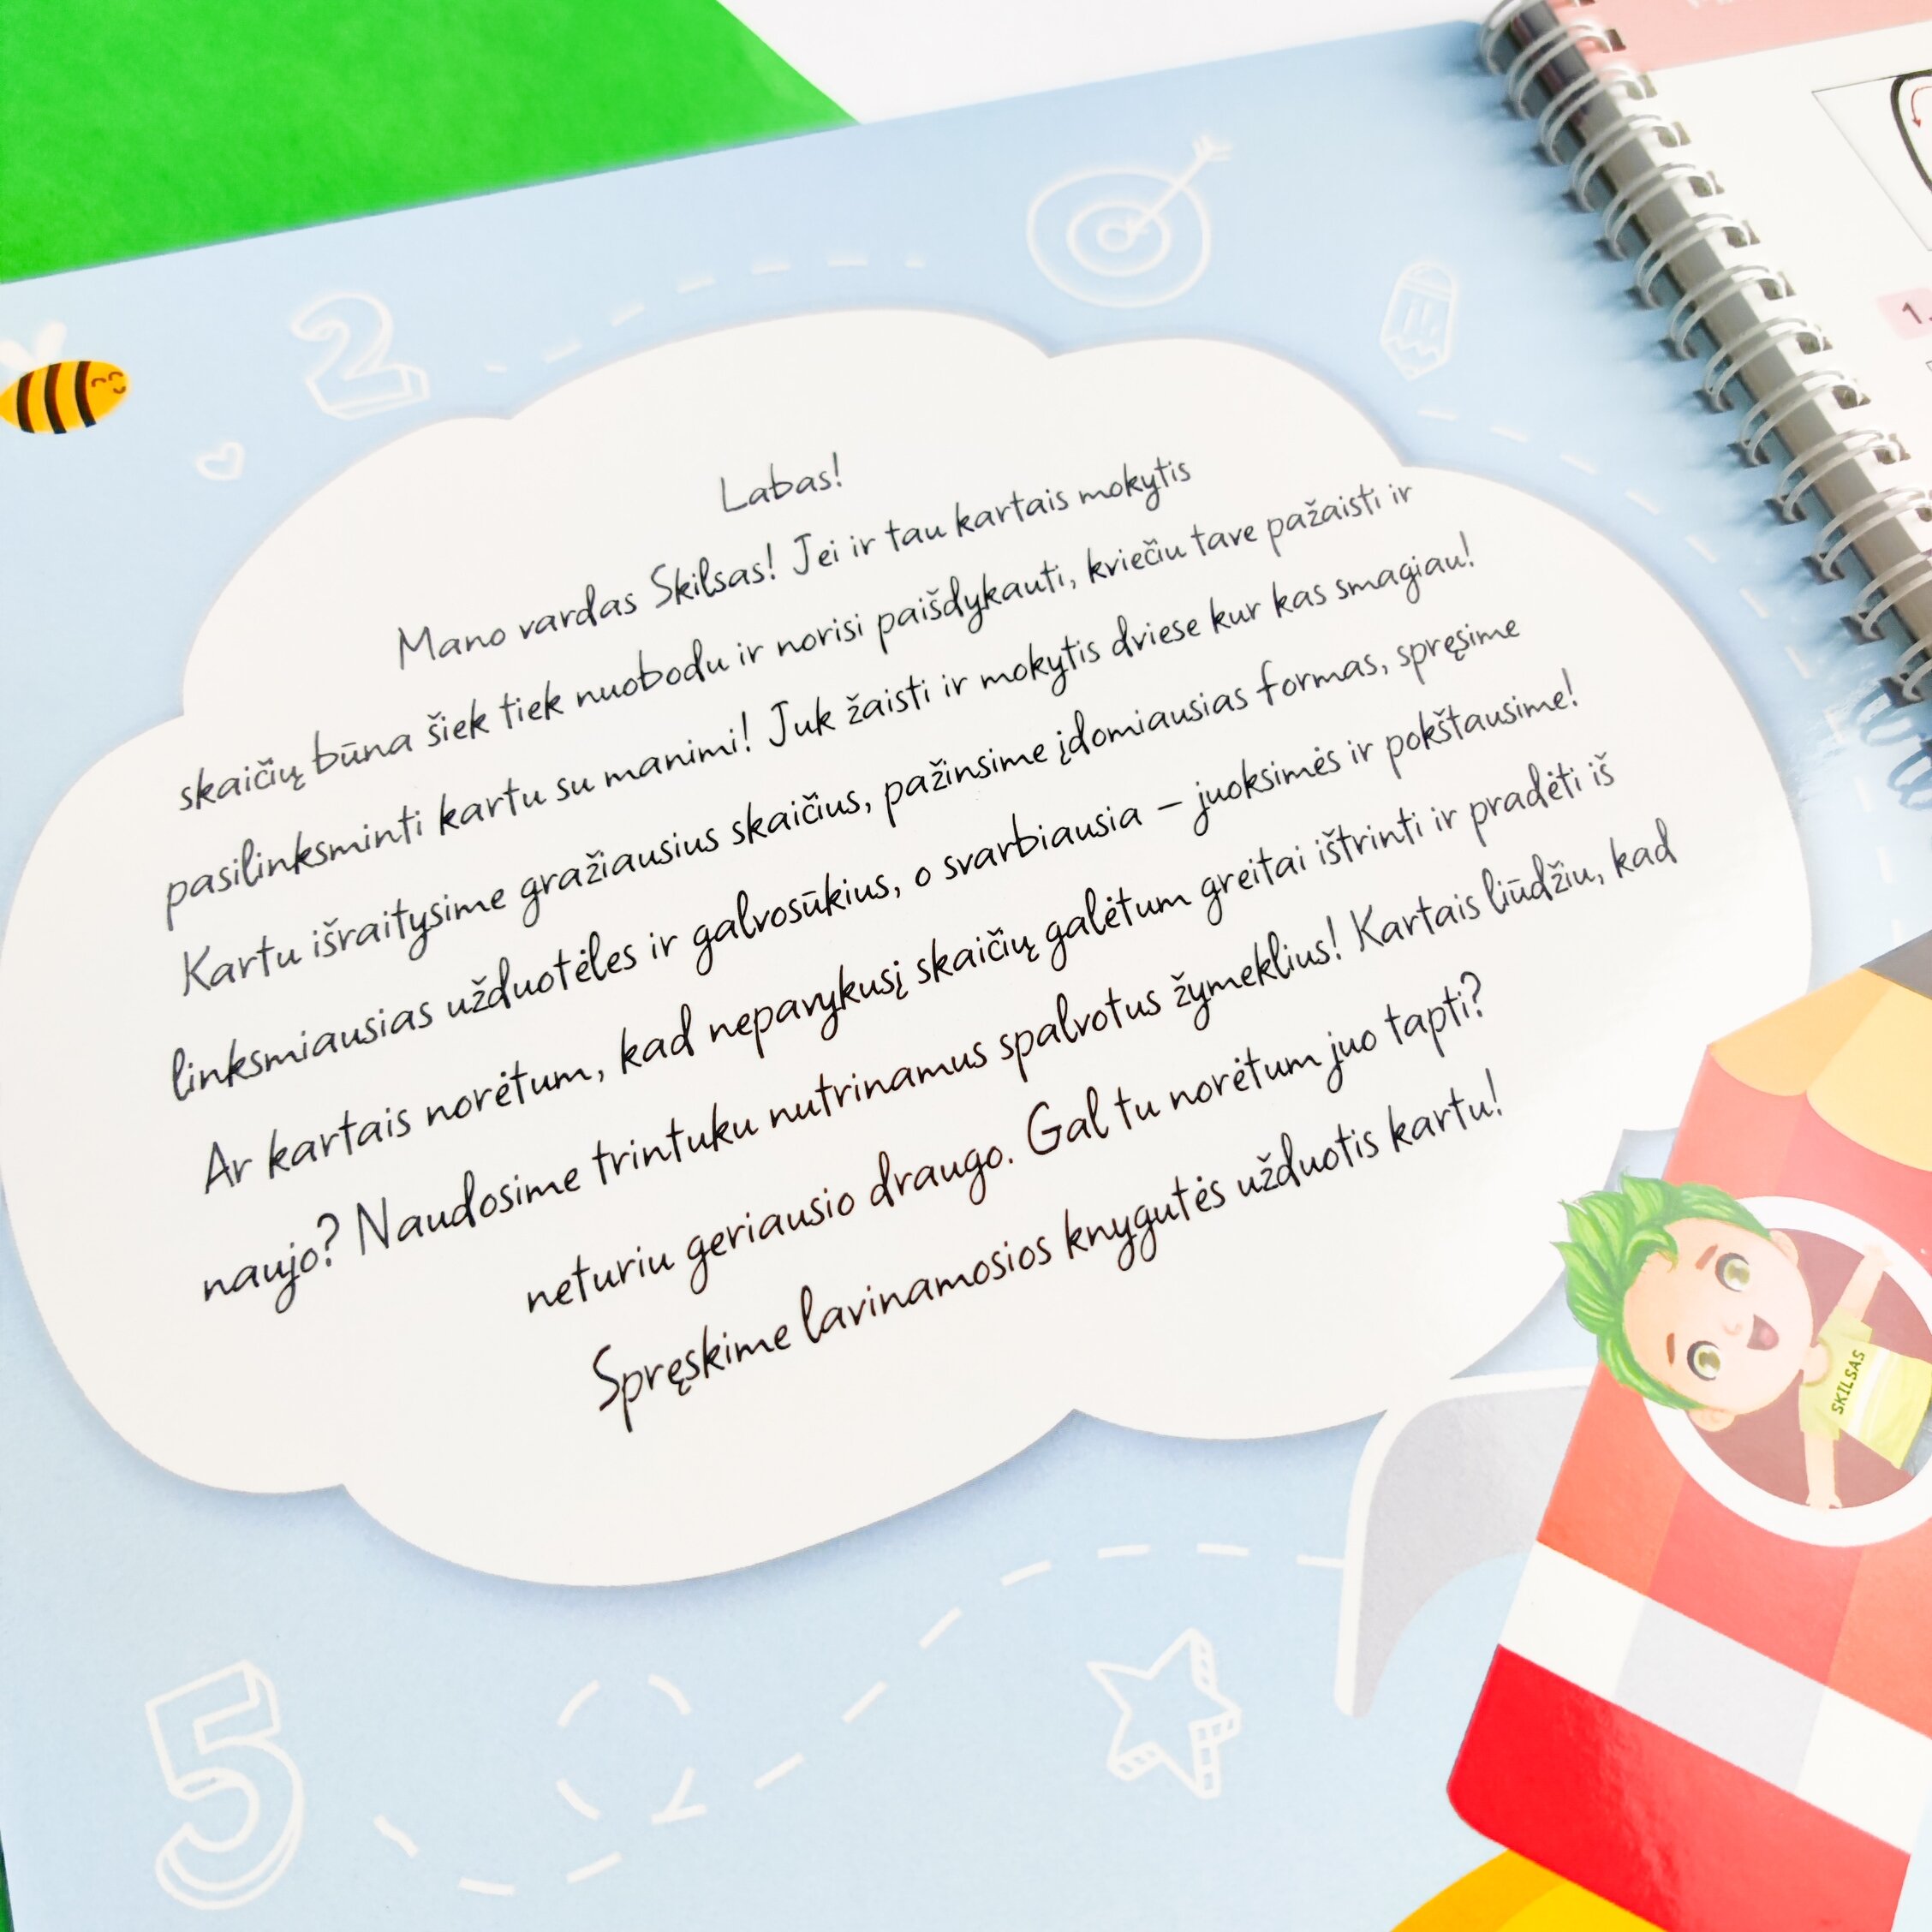 Labas!
Mano vardas Skilsas! Jei ir tau kartais mokytis
skaičių būna šiek tiek nuobodu ir norisi paišdykauti, kviečiu tave pažaisti ir
pasilinksminti kartu su manimi! Juk žaisti ir mokytis dviese kur kas smagiau!
Kartu išraitysime gražiausius skaičius, pažinsime įdomiausias formas, spręsime
linksmiausias užduotėles ir galvosūkius, o svarbiausia – juoksimės ir pokštausime!
Ar kartais norėtum, kad nepavykusį skaičių galėtum greitai ištrinti ir pradėti iš
naujo? Naudosime trintuku nutrinamus spalvotus žymeklius! Kartais liūdžiu, kad
neturiu geriausio draugo. Gal tu norėtum juo tapti?
Spręskime lavinamosios knygutės užduotis kartu!
SKILSAS
2
5
1.